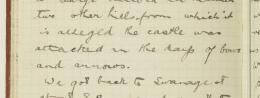 two other hills, from which it
is alleged the castle was
attacked in the days of bows
and arrows.
We got back to Swanage at